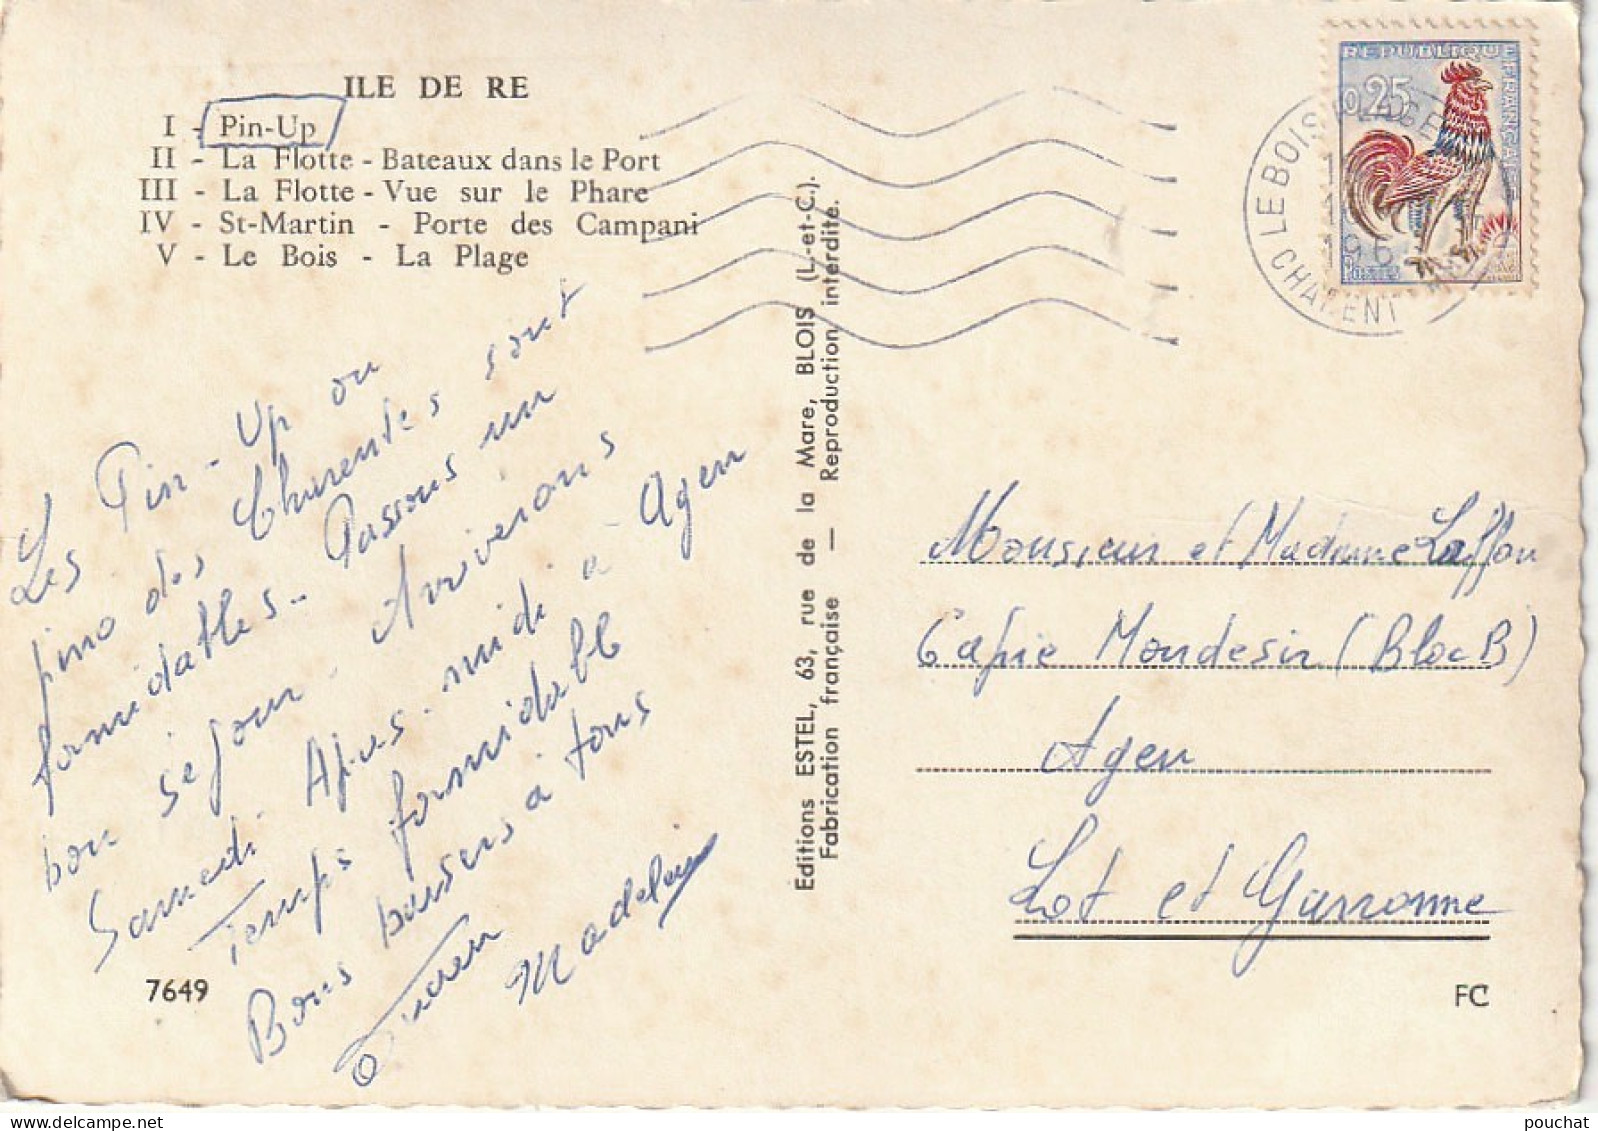 ILE DE RE
I - Pin-Up
II - La Flotte - Bateaux dans le Port
III - La Flotte - Vue sur le Phare
IV - St-Martin - Porte des Campani
V - Le Bois - La Plage
REPUBLIQUE FRANÇAISE
0,25
POSTES
LE BOIS PLAGE
196
CHARENT
Les Pin-Up ou
pino des Charentes sont
formidables.. Passons un
bon séjour. Arriverons
Samedi Après-midi à Agen
Temps formidable
Bons baisers à tous
Madeleine
7649
Editions ESTEL, 63, rue de la Mare, BLOIS (L.-et-C.).
Fabrication française — Reproduction interdite.
Monsieur et Madame Laffon
Mondesir (Bloc B)
Agen
Lot et Garonne
FC
pouchat